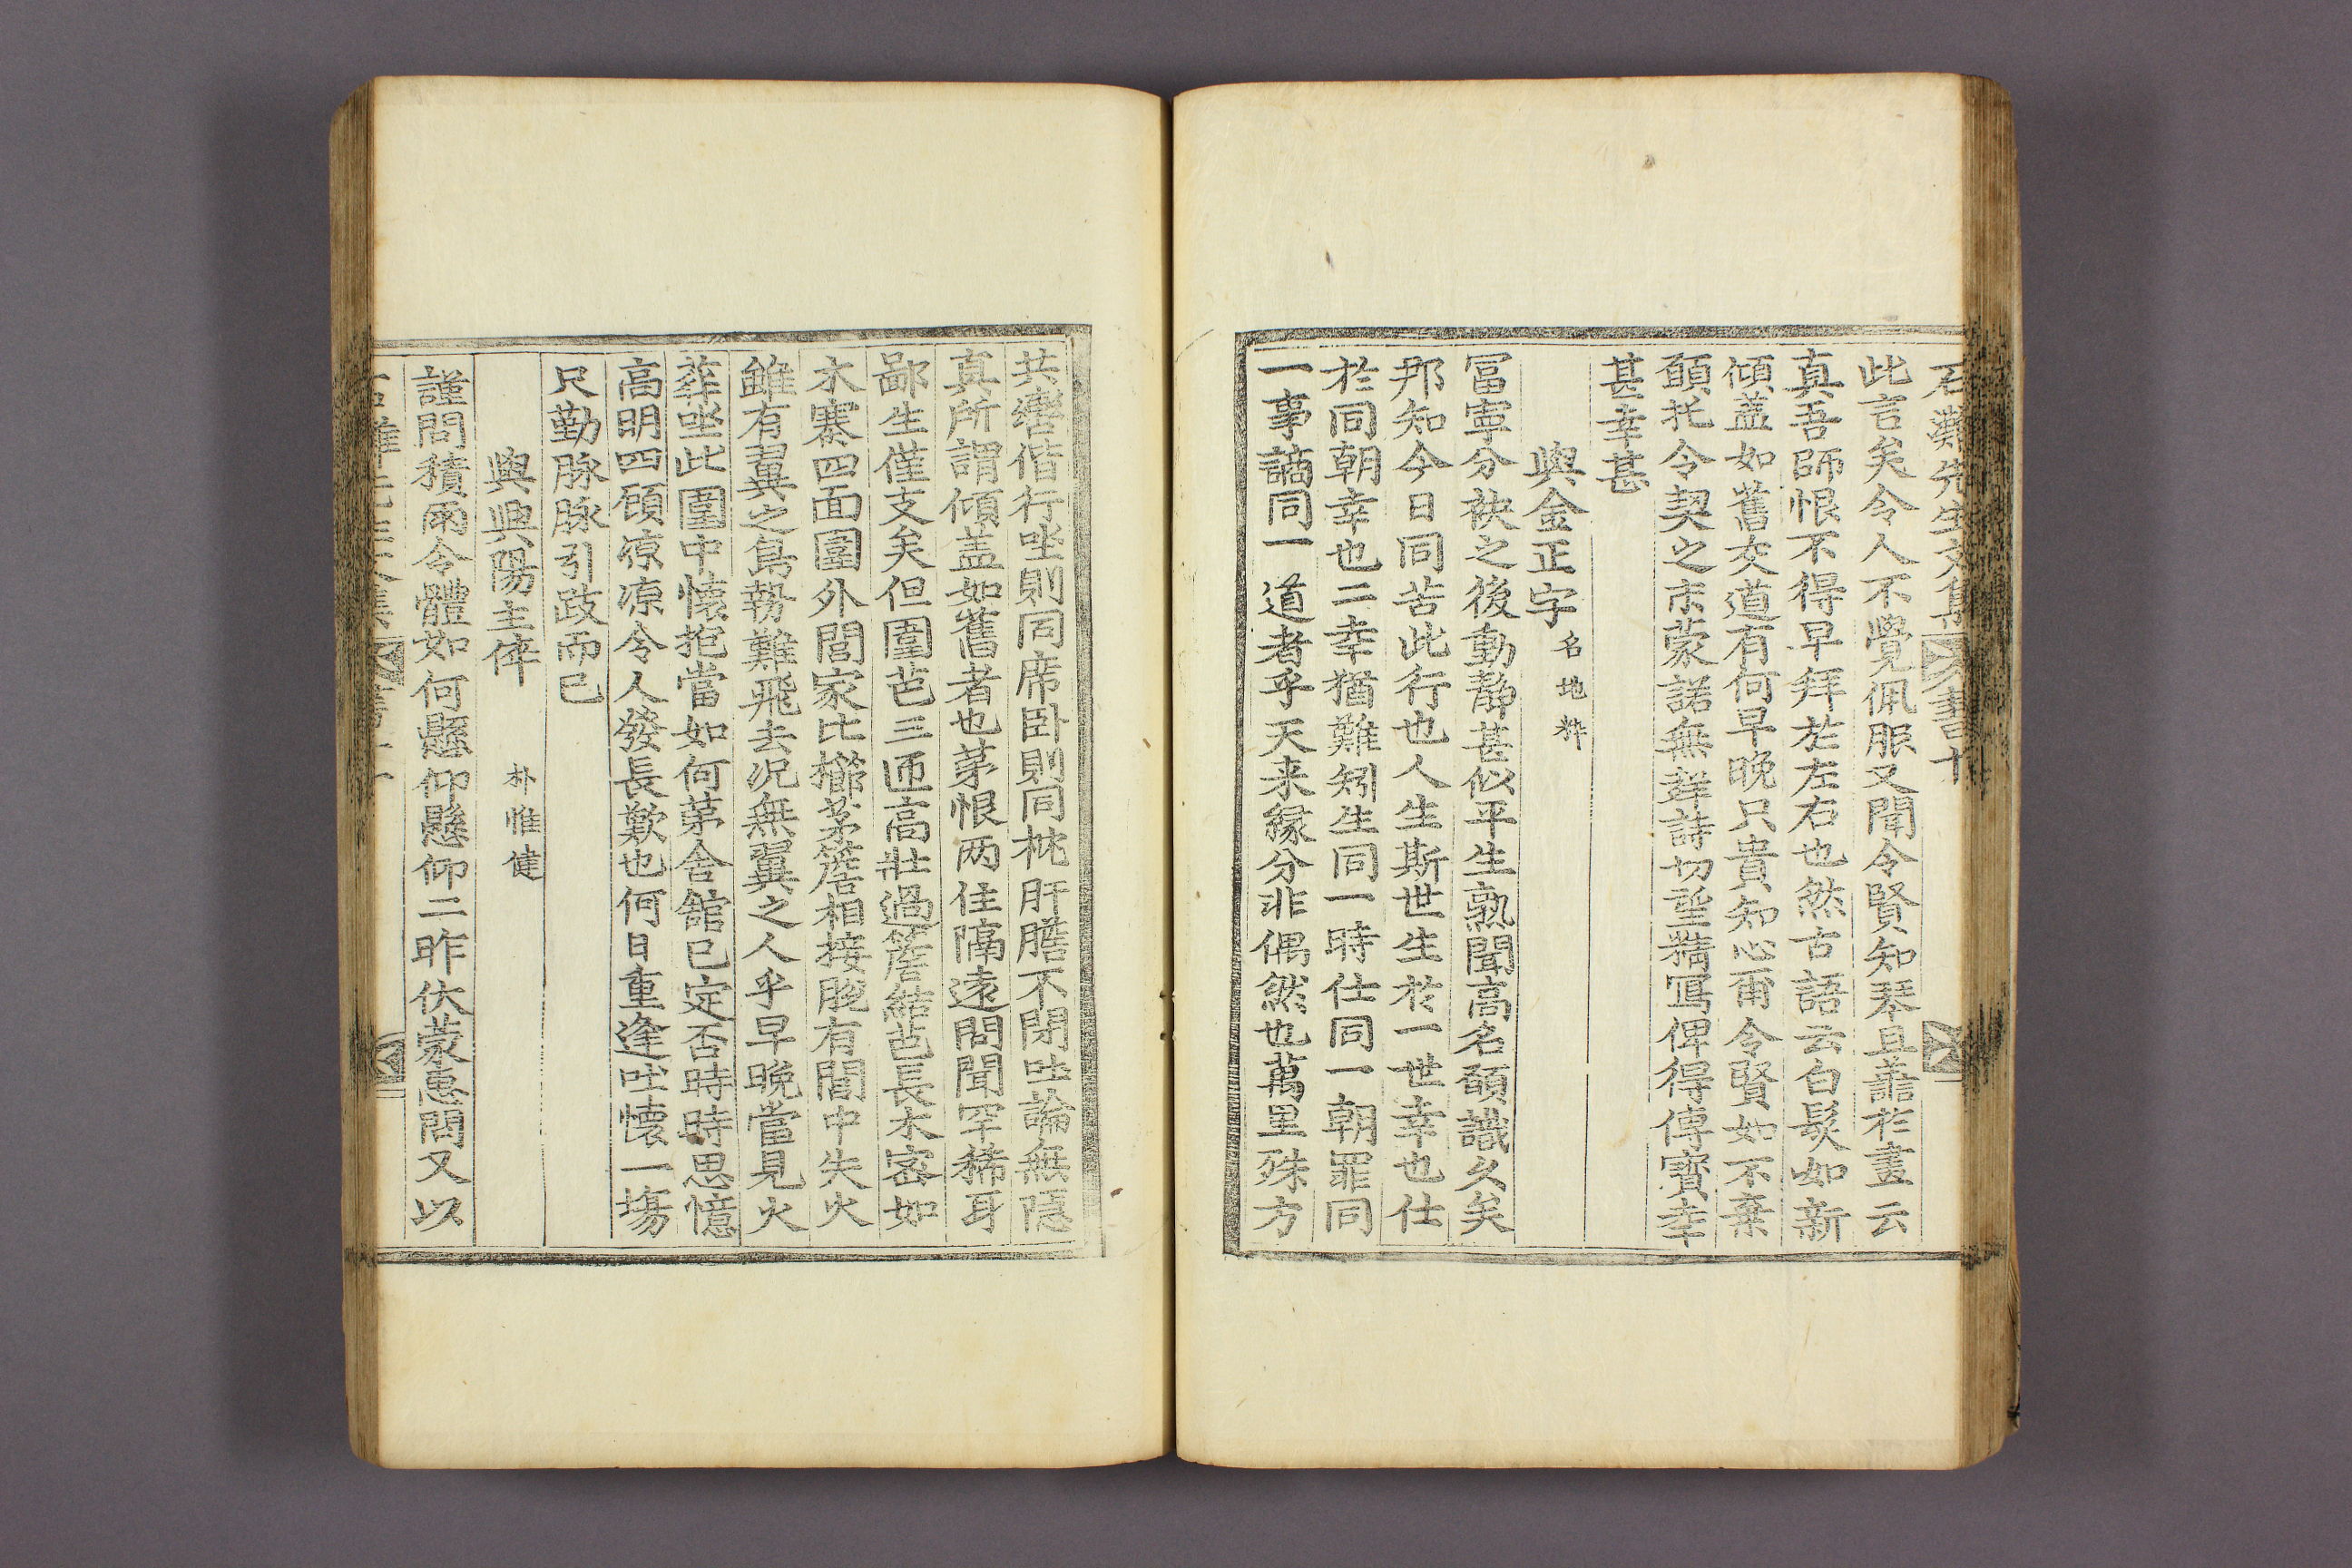 石灘先生文集 書 十
此言矣令人不覺佩服又聞令賢知琴且善於畫云
真吾師恨不得早拜於左右也然古語云白髮如新
傾盖如舊交道有何早晚只貴知心爾令賢如不棄
願托令契之末蒙諾無幷詩切望精寫俾得傳寶幸
甚幸甚
與金正字名地粹
冨寧分袂之後動静甚似平生熟聞高名願識久矣
那知今日同苦此行也人生斯世生於一世幸也仕
於同朝幸也二幸猶難矧生同一時仕同一朝罪同
一事謫同一道者乎天来緣分非偶然也萬里殊方
共轡偕行坐則同席卧則同枕肝膽不閉吐論無隱
真所謂傾盖如舊者也茅恨两住隔遠問聞罕稀身
鄙生僅支矣但圍芭三匝高壯過簷結芭長木密如
木寨四面圍外閭家比櫛茅簷相接脫有閭中失火
雖有翼之鳥勢難飛去況無翼之人乎早晚當見火
葬坐此圍中懷抱當如何茅舍舘已定否時時思憶
高明四顧凉凉令人發長歎也何日重逢吐懷一塲
只勤脉脉引跂而已
與興陽主倅朴惟健
謹問積雨令體如何懸仰懸仰二昨伏蒙惠問又以